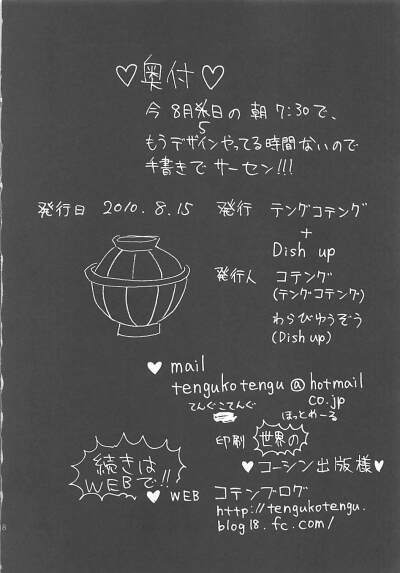 ♡奥付♡
今 8月5日の朝7:30で、
もうデザインやってる時間ないので
手書きでサーセン!!!
発行日 2010.8.15
発行 テングコテング
+
Dish up
発行人 コテング
(テングコテング)
わらびゆうぞう
(Dish up)
♥ mail
tengukotengu@hotmail
co.jp
てんぐこてんぐ ほっとめーる
印刷 世界の
♥コーシン出版様♥
続きは
WEBで!!
♥ WEB コテンブログ
http://tengukotengu.
blog18.fc.com/
8